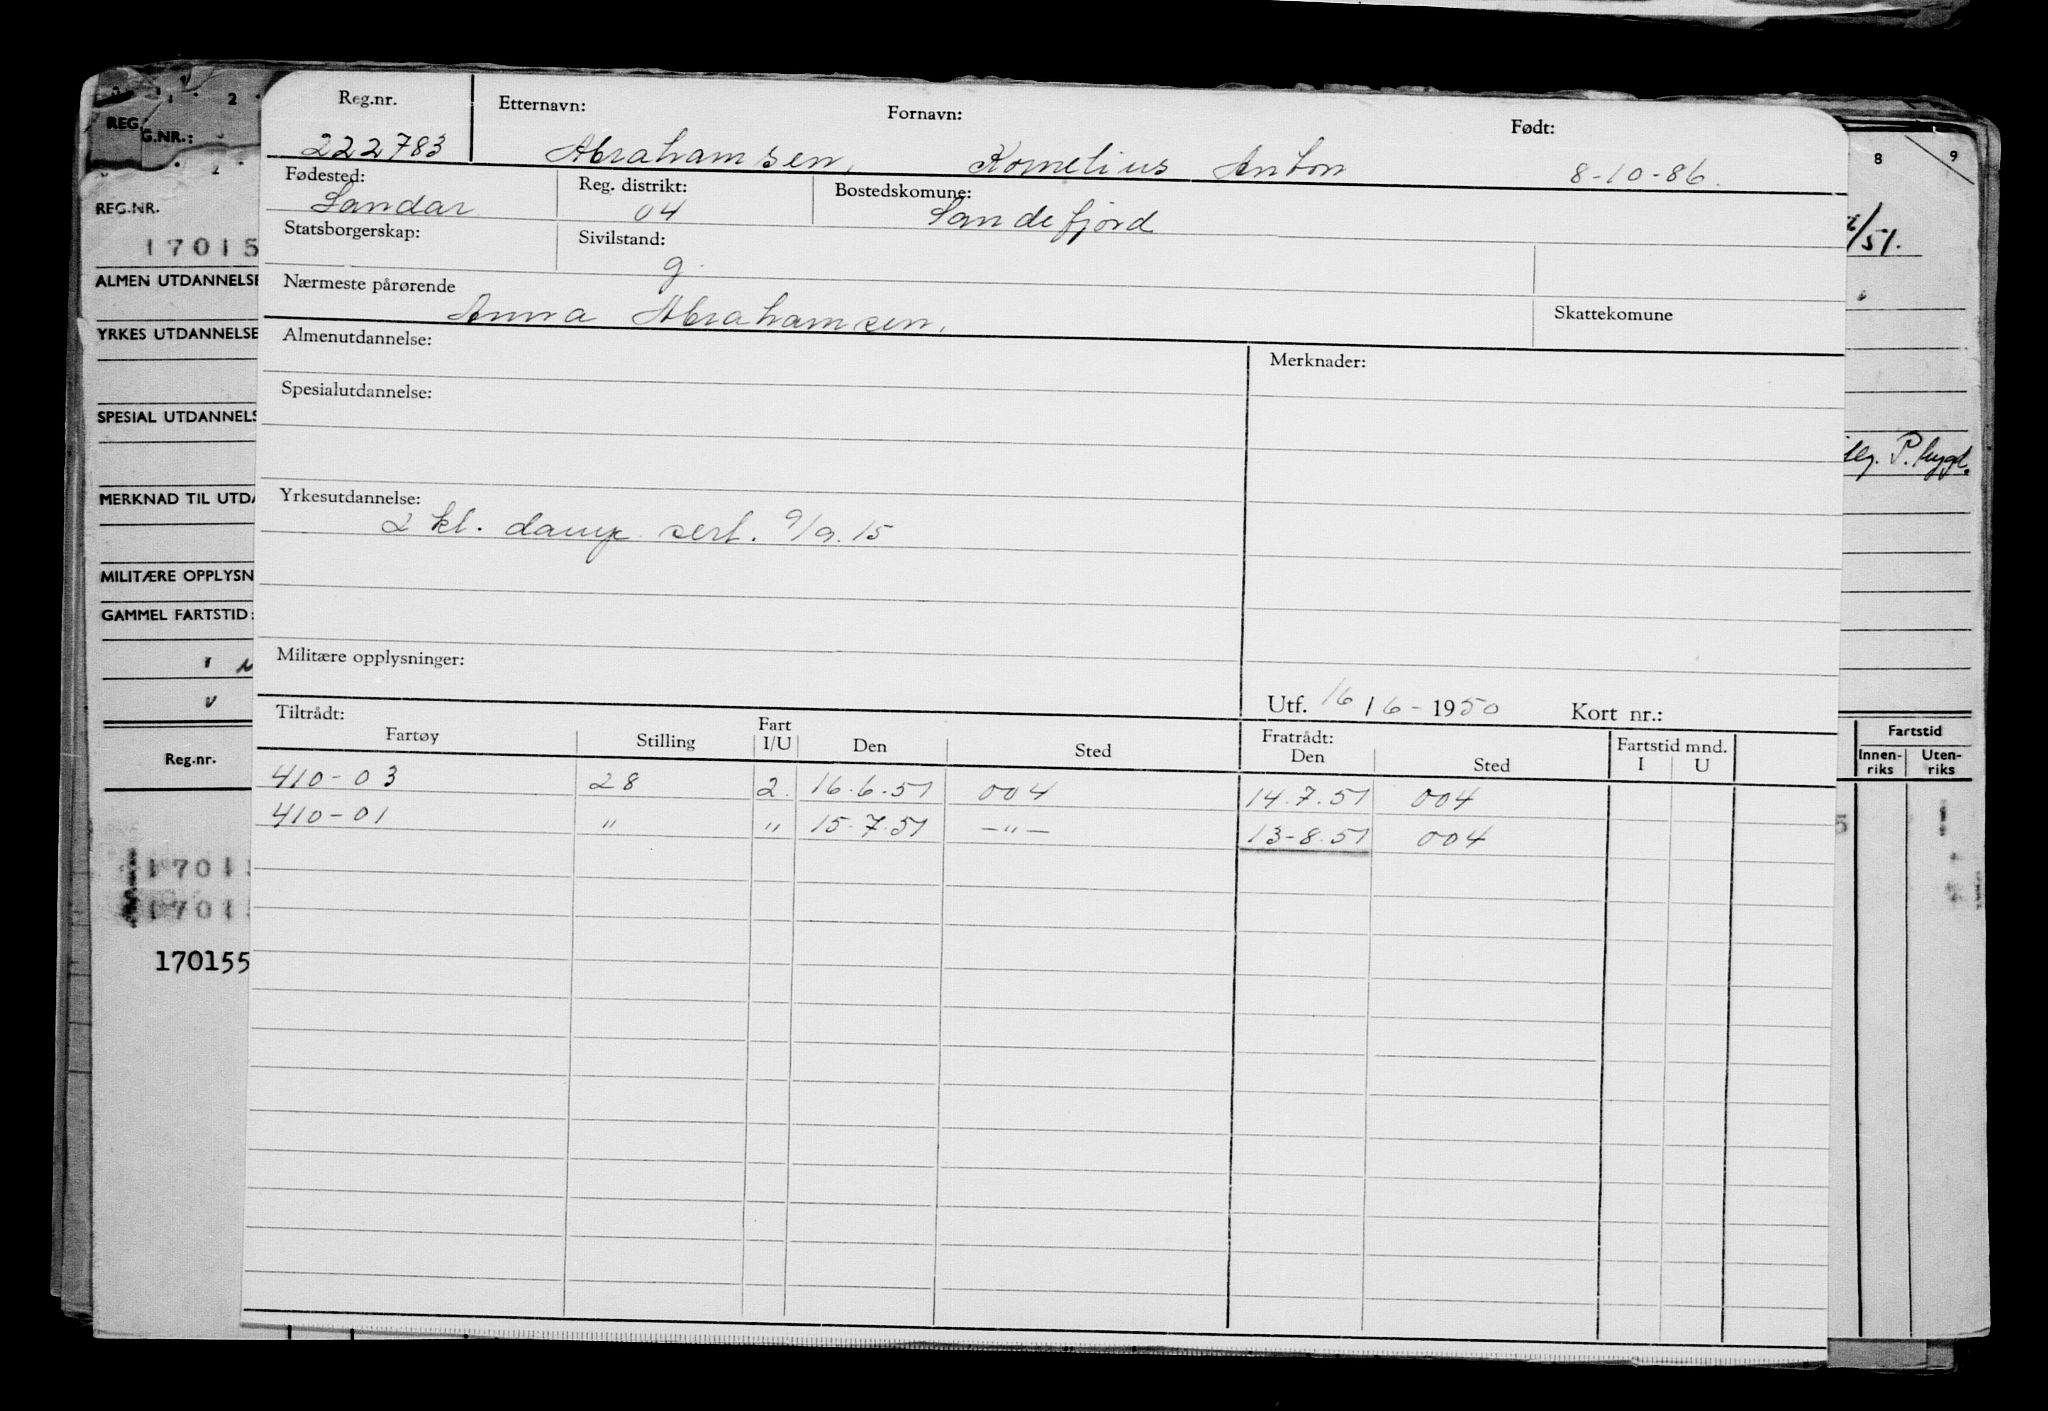 Reg.nr. Etternavn: Fornavn: Født:
222783 Abrahamsen, Kornelius Anton 8-10-86.
Fødested: Reg. distrikt: Bostedskomune:
Sandar 04 Sandefjord
Statsborgerskap: Sivilstand:
g.
Nærmeste pårørende Skattekomune
Anna Abrahamsen,
Almenutdannelse: Merknader:
Spesialutdannelse:
Yrkesutdannelse:
2 kl. damp sert. 9/9.15
Militære opplysninger:
Utf. 16/6-1950 Kort nr.:
Tiltrådt: Fratrådt:
Fartøy Stilling Fart I/U Den Sted Den Sted Fartstid mnd. I U
410-03 28 2. 16.6.51 004 14.7.51 004
410-01 " " 15.7.51 -"- 13-8.51 004
1 2
REG.
G.NR.:
2
REG.NR.
17015
ALMEN UTDANNELSE
YRKES UTDANNELSE
SPESIAL UTDANNELS
MERKNAD TIL UTDA
MILITÆRE OPPLYSN
GAMMEL FARTSTID:
Reg.nr.
17015
17015
170155
8 9
/51.
Fartstid
Innen-riks Uten-riks
5 1